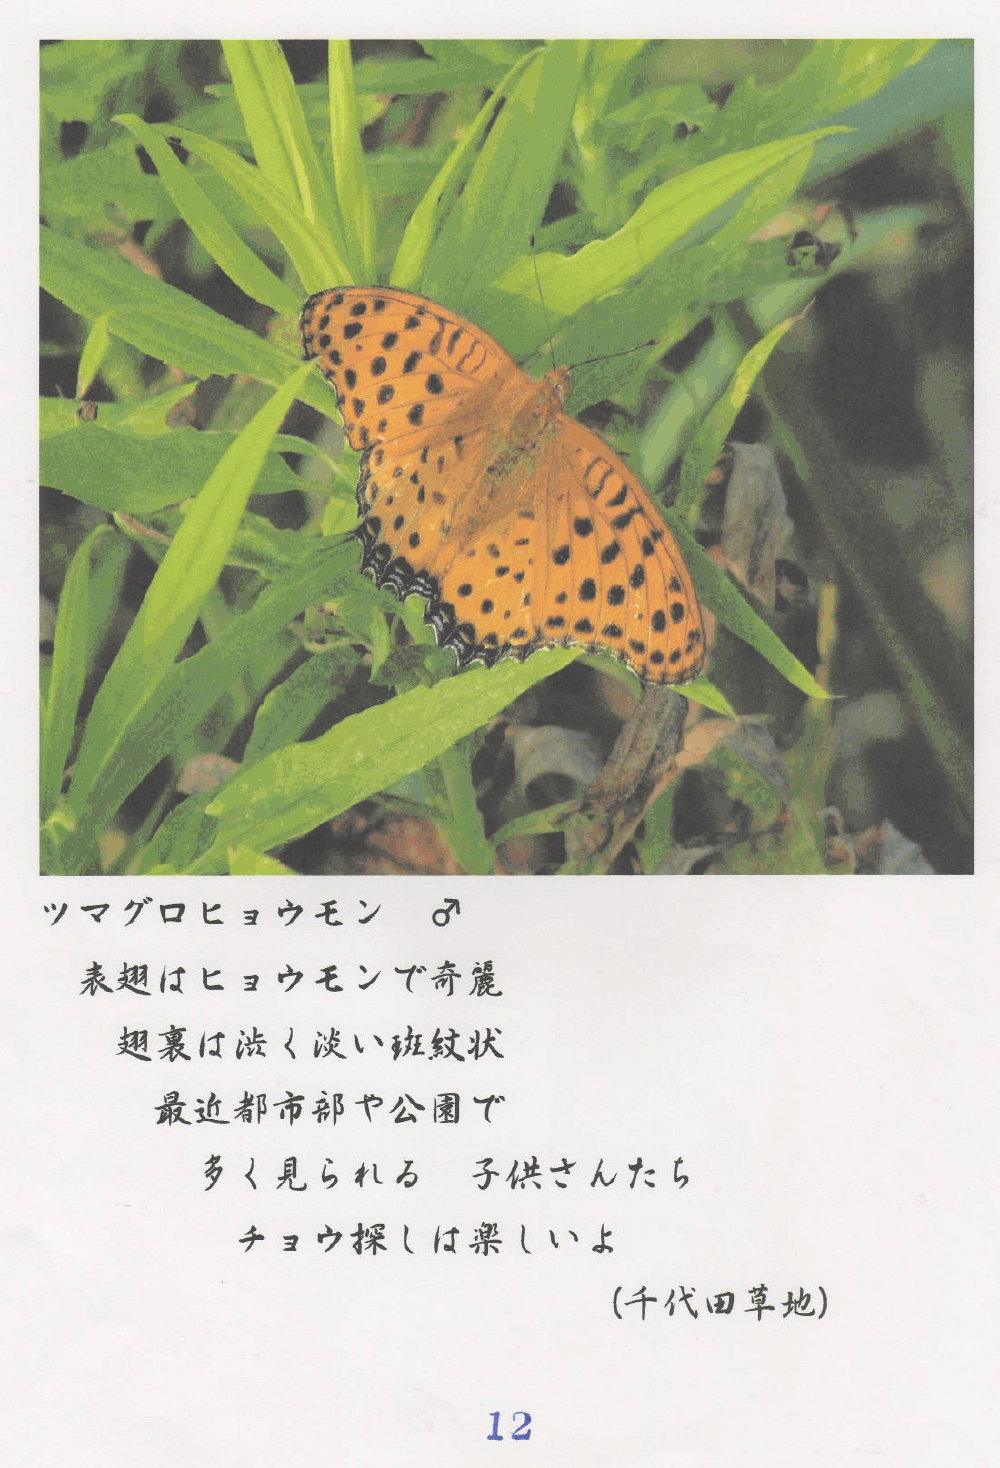 ツマグロヒョウモン　♂
表翅はヒョウモンで奇麗
翅裏は渋く淡い斑紋状
最近都市部や公園で
多く見られる　子供さんたち
チョウ探しは楽しいよ
(千代田草地)
12